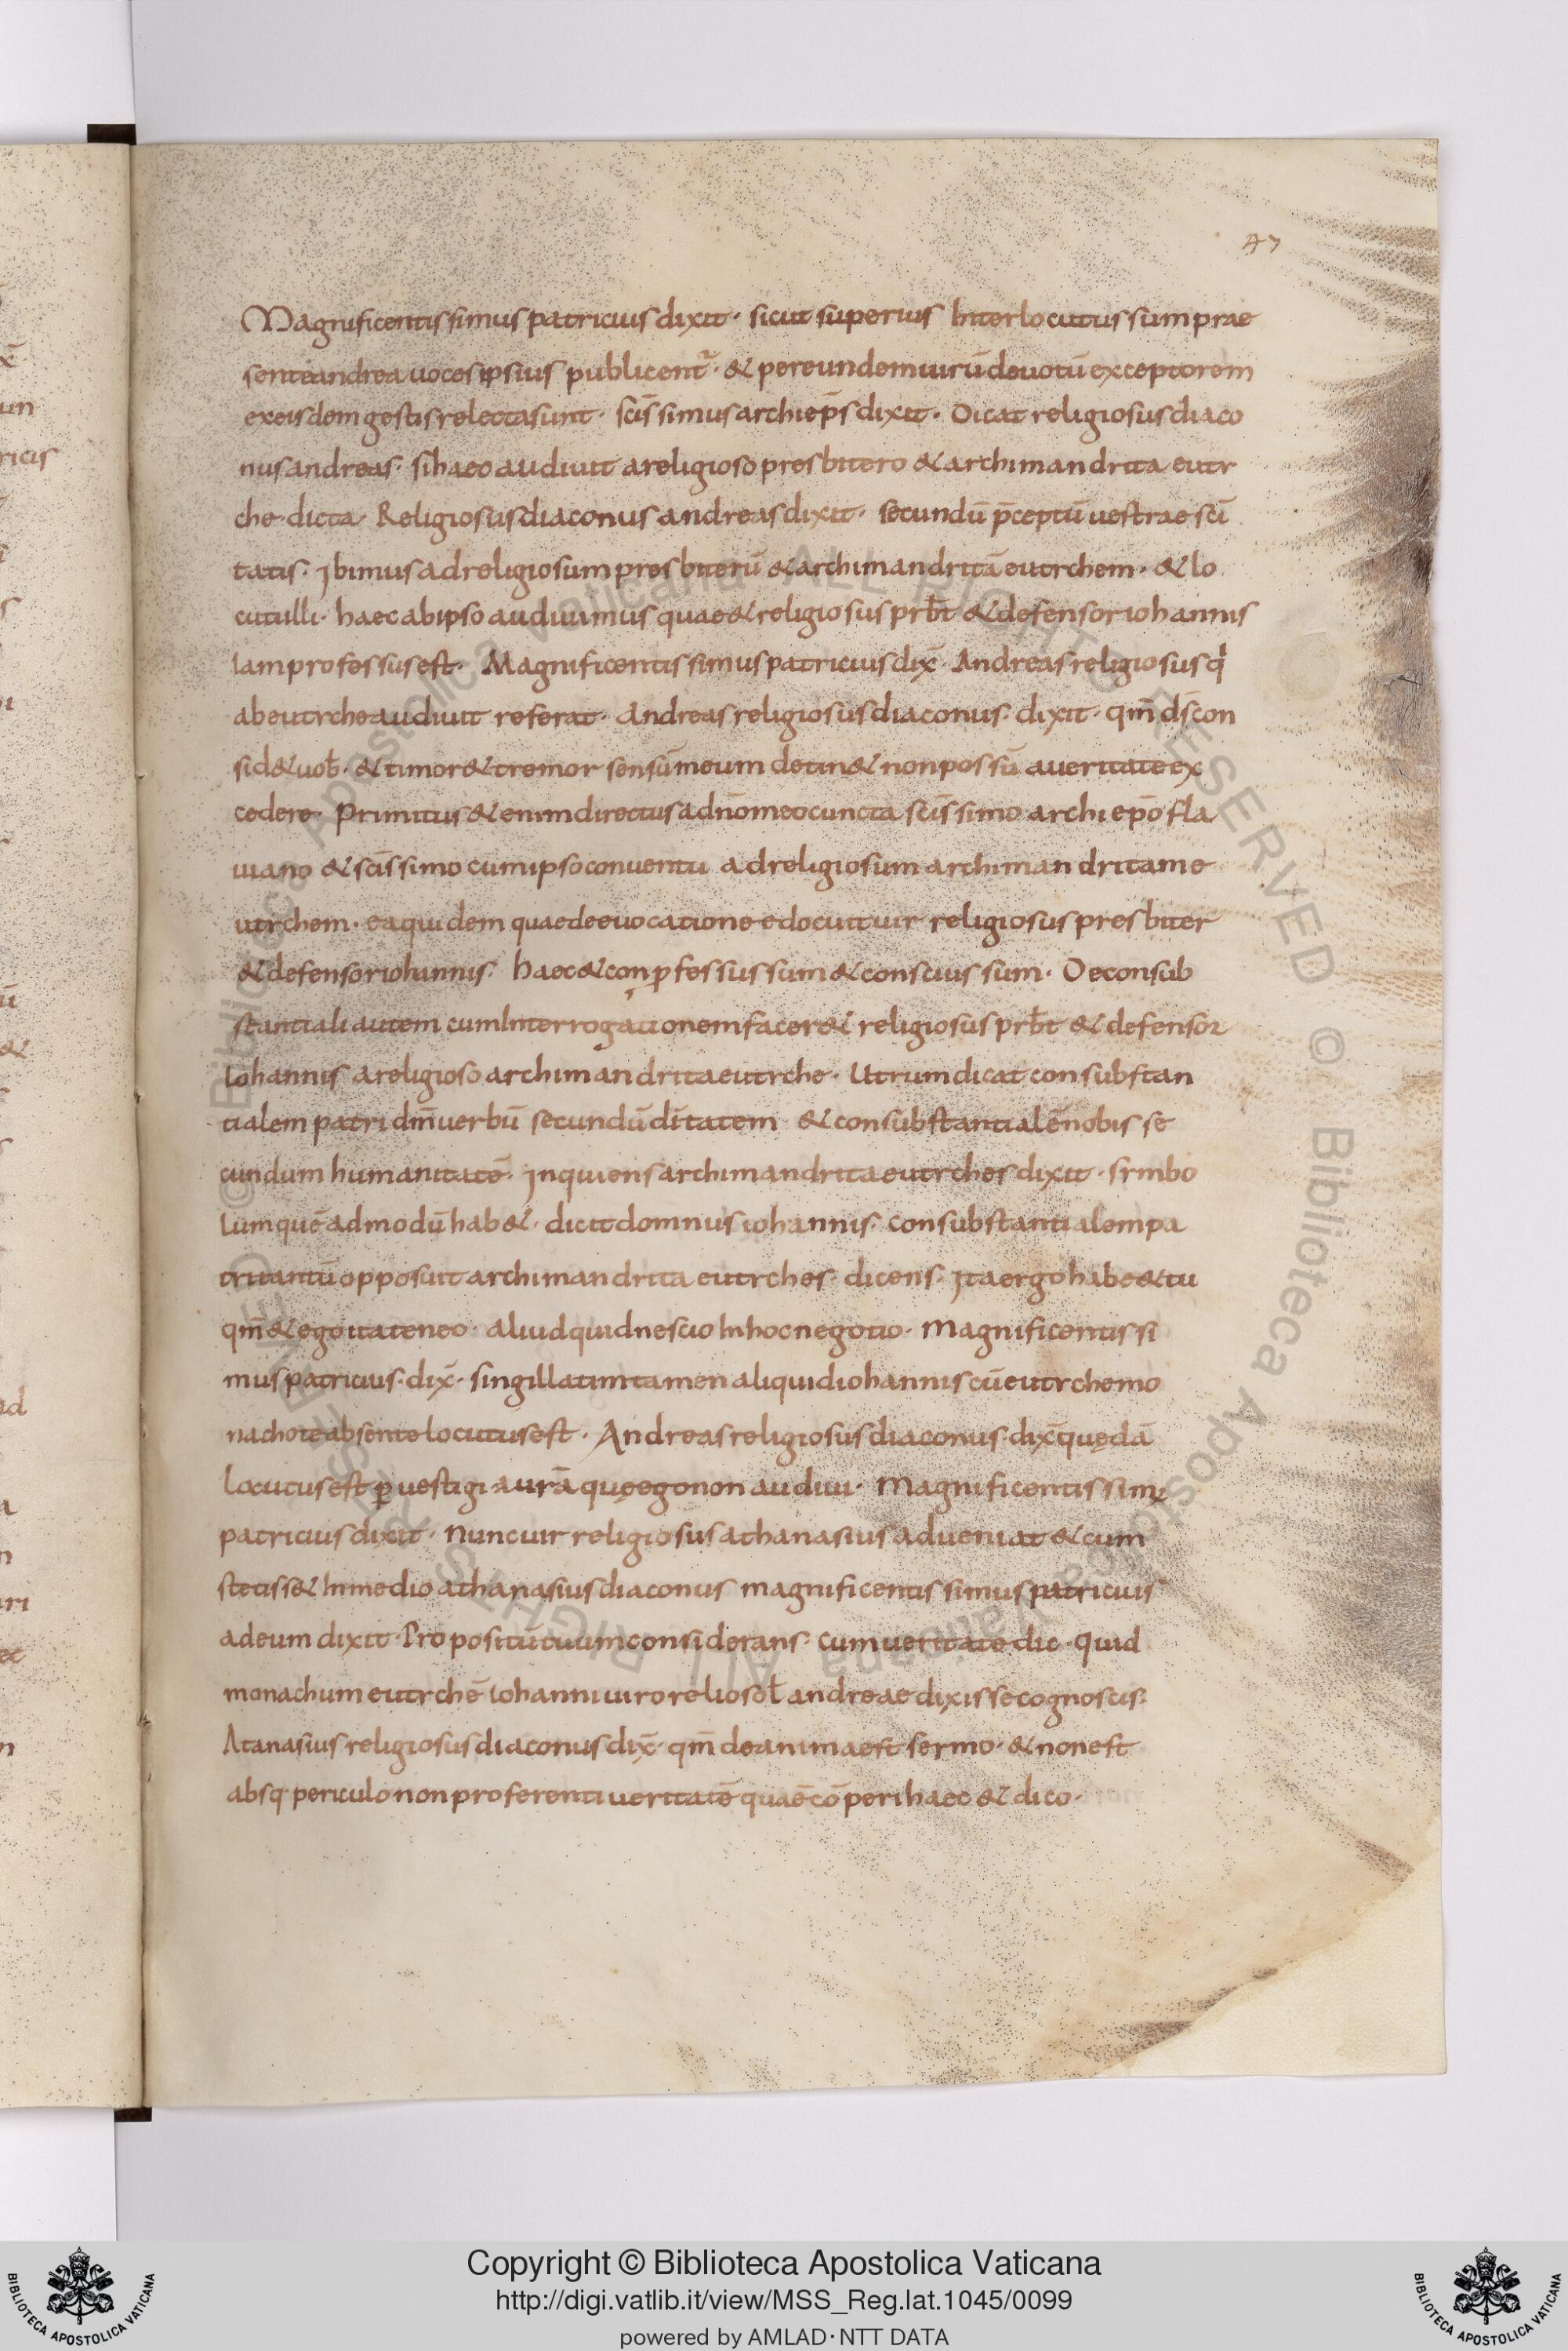 47
Magnificentissimus patricius dixit · sicut superius Interlocutus sum prae
sente andrea uoces ipsius publicent᷑ · & per eundem uirū deuotū exceptorem
ex eisdem gestis relecta sunt · scīssimus archiep̄s dixit · Dicat religiosus diaco
nus andreas · si haec audiuit a religioso presbitero & archimandrita euty
che dicta · Religiosus diaconus andreas dixit · secundū p̄ceptū uestrae scī
tatis · Ibimus ad religiosum presbiterū & archimandritā eutychem · & lo
cut illi · haec ab ipso audiuimus quae & religiosus prb̄t & defensor iohannis
Iam professus est · Magnificentissimus patricius dix̄ · Andreas religiosus q
ab eutyche audiuit referat · Andreas religiosus diaconus · dixit · qm̄ d̄s con
sid& uob̄ · & timor & tremor sensū meum detin& non possū a ueritate ex
cedere · Primitus & enim directus ad n̄o meo cuncta scīssimo archiep̄o fla
uiano & scīssimo cum ipso conuentu ad religiosum archimandritam e
utychem · ea quidem quae de euocatione edocuit uir religiosus presbiter
& defensor iohannis · haec & conꝓfessus sum & conscius sum · De consub
stantiali autem cum Interrogationem facer& religiosus prb̄t & defensor
Iohannis a religioso archimandrita eutyche · Utrum dicat consubstan
tialem patri dn̄m uerbū secundū dītatem & consubstantialē nobis se
cundum humanitatē · Inquiens archimandrita eutyches dixit · symbo
lum quē admodū hab& · dicit domnus iohannis · consubstantialem pa
tri tantū opposuit archimandrita eutyches · dicens · Ita ergo habe & tu
qm̄ & ego ita teneo · aliud quid nescio In hoc negotio · Magnificentissi
mus patricius · dix̄ · singillatim tamen aliquid iohannis cū eutyche mo
nacho te absente locutus est · Andreas religiosus diaconus dix̄ quędā
locutus est ꝑ uestigi aurā quę ego non audiui · Magnificentissimꝰ
patricius dixit · Nunc uir religiosus athanasius adueniat & cum
stetiss& In medio athanasius diaconus magnificentissimus patricius
ad eum dixit · Propositū tuum considerans · cum ueritate dic · quid
monachum eutychē iohanni uiro relioso ł andreae dixisse cognoscis ·
Atanasius religiosus diaconus dix̄ · qm̄ de anima est sermo · & non est
absq· periculo non proferenti ueritatē quae cōperi haec & dico ·
Copyright © Biblioteca Apostolica Vaticana
http://digi.vatlib.it/view/MSS_Reg.lat.1045/0099
powered by AMLAD·NTT DATA